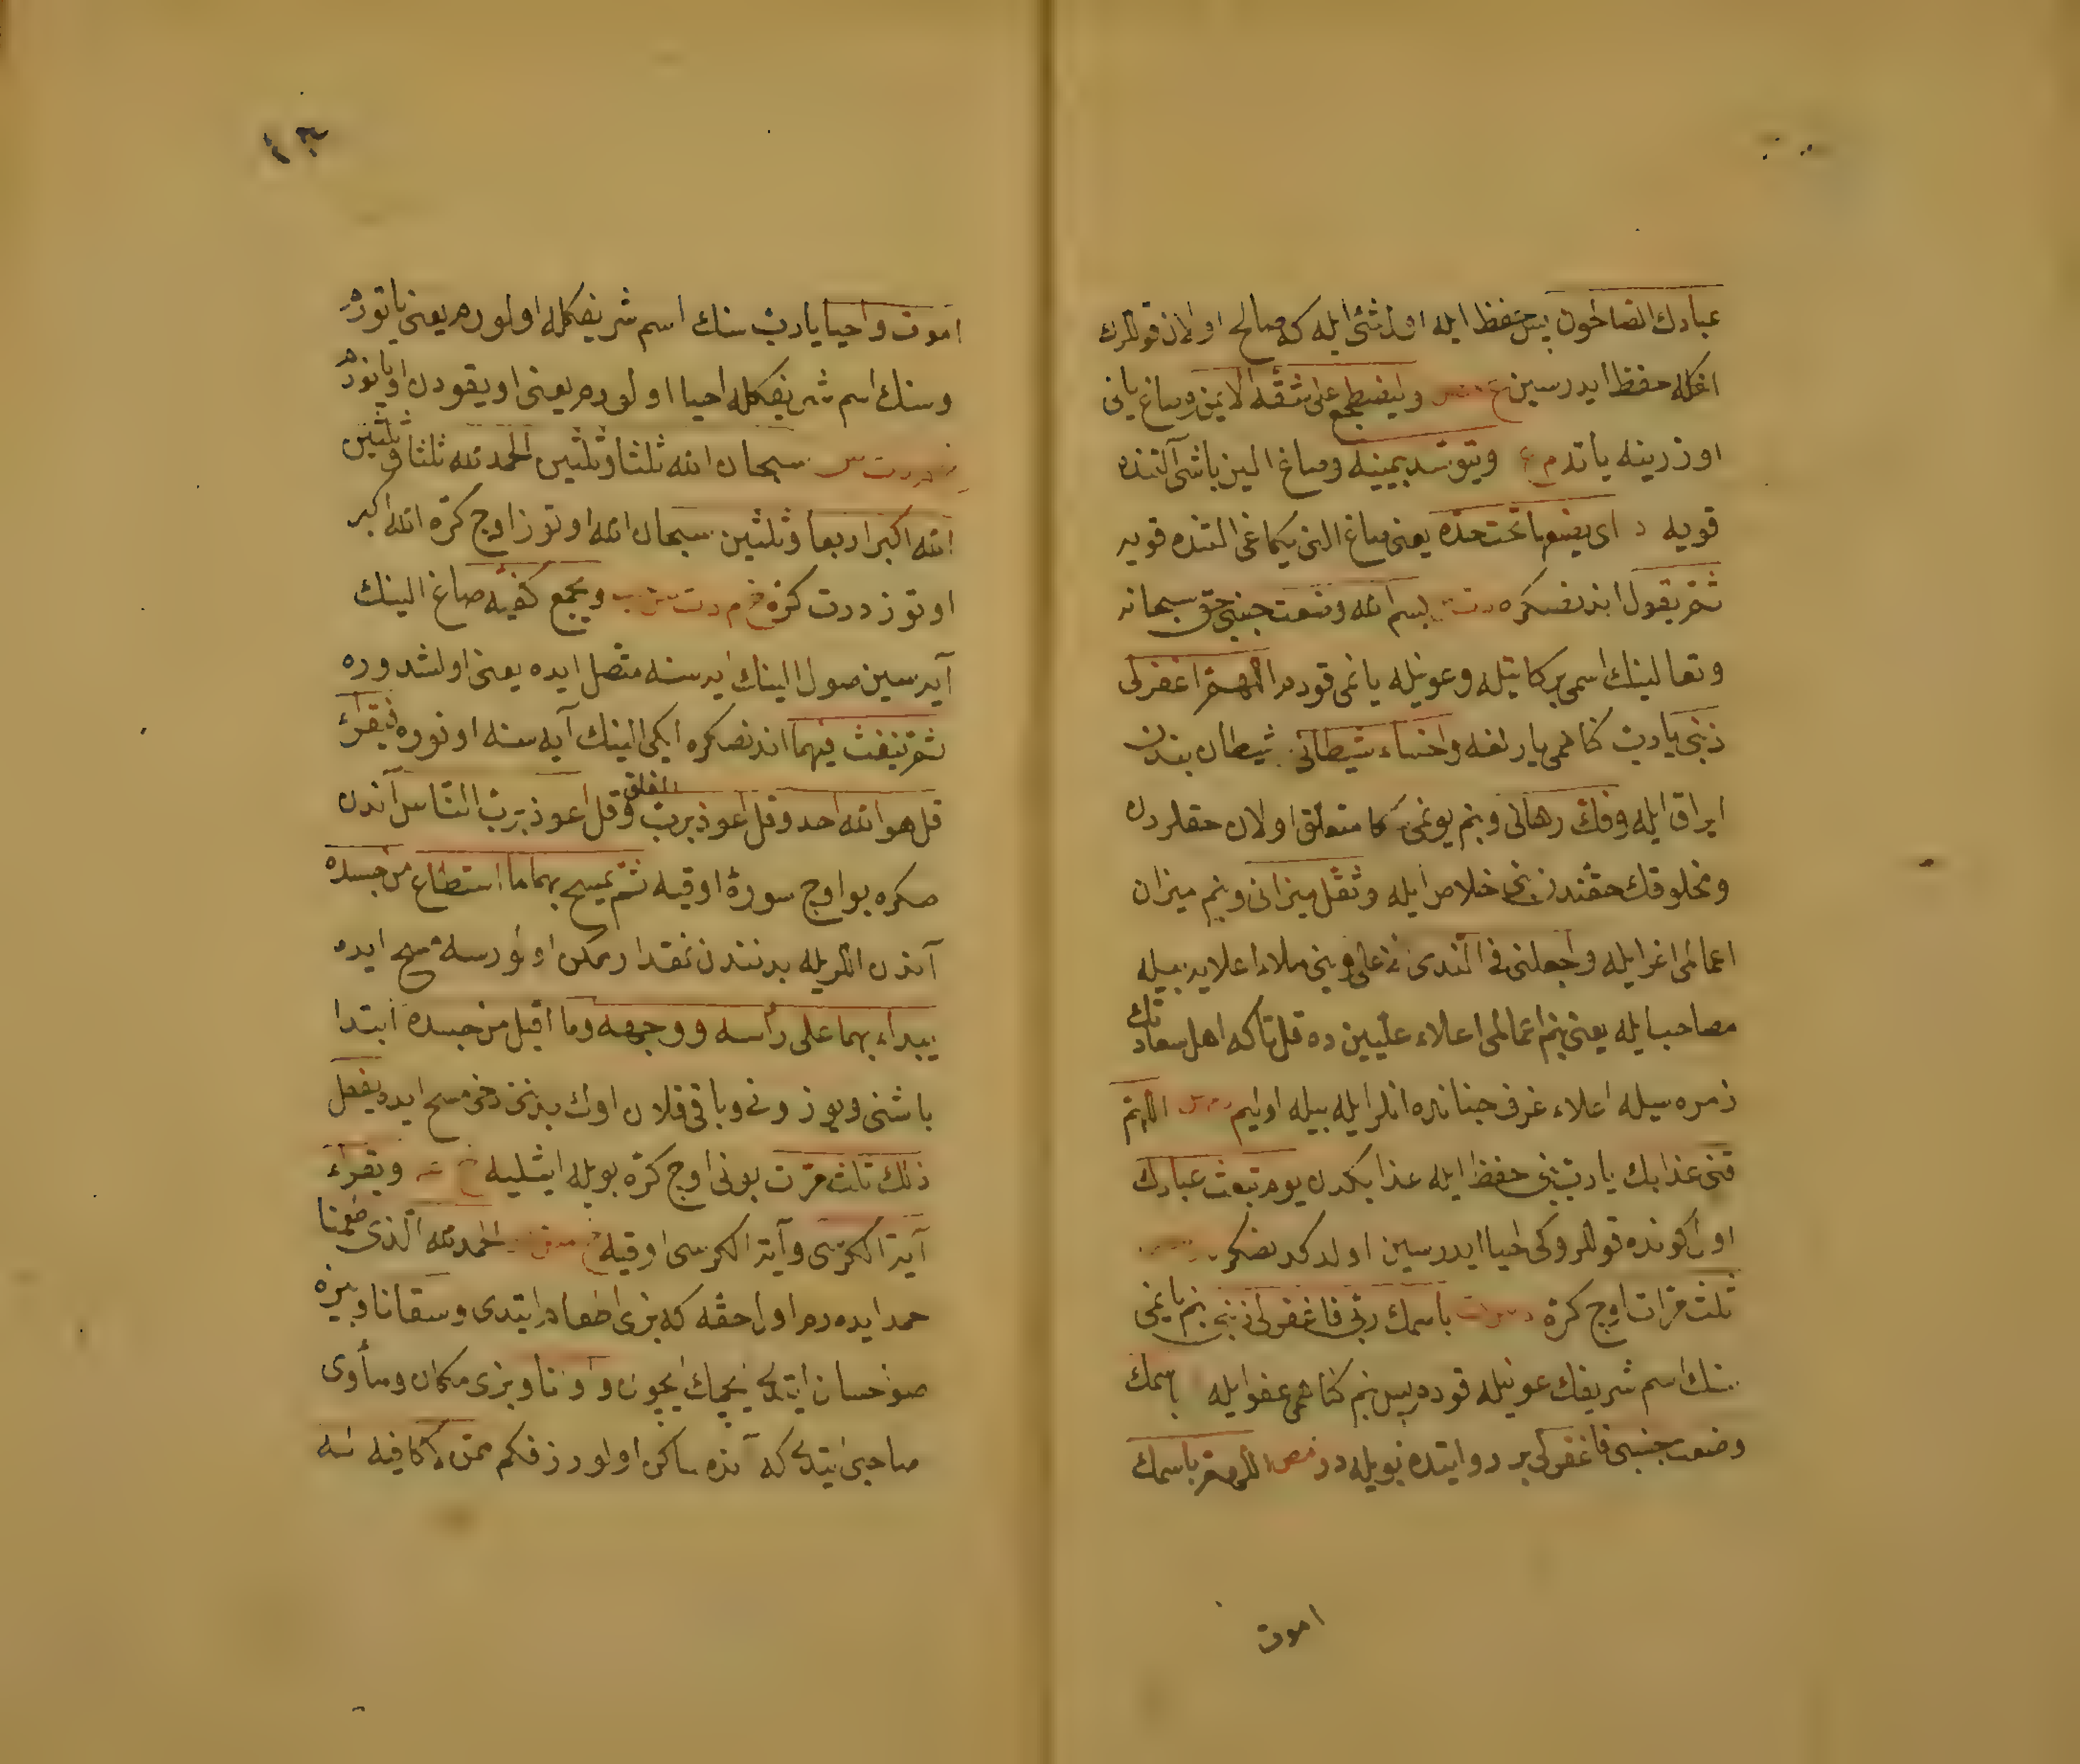 عبادك الصالحون بس حفظ ايله اول شئ ايله كه صالح اولان قوللرك
انكله حفظ ايدرسين وليضطجع على شقه الايمن وصاغ ياني
اوزرينه ياتدم ويتوسد يمينه وصاغ الين باشى آلتنده
قويه د اى يضعها تحت خده يعنى صاغ الن يكاغى التنده قويه
ثم يقول اندنصكره بسم الله وضعت جنبى حق سبحانه
وتعالينك اسمى بركاتيله وعونيله يانمى قودم اللهم اغفرلى
ذنبى يا رب كناهمى يارلغه واخساء شيطانى شيطان بندن
ايراق ايله وفك رهانى وبنم بوغمى كا متعلق اولان حقلردن
ومخلوقك حقندن بنى خلاص ايله وثقل ميزانى وبنم ميزان
اعمالمى اغر ايله واجعلنى فى الندى الاعلى وبنى ملاء اعلا ايله بيله
مصاحب ايله يعنى بنم اعمالمى اعلاء عليين ده قل تاكه اهل سعادتك
زمره سيله اعلاء غرف جنانده انلر ايله بيله اوليم اللهم
قنى عذابك يا رب بنى حفظ ايله عذابكدن يوم تبعث عبادك
اول كونده قوللروكى احيا ايدرسين اولدكدنصكره
ثلث مرات اوج كره باسمك ربى فاغفرلى ذنبى بنم يانمى
سنك اسم شريفك عونيله قودم بس بنم كناهمى عفو ايله باسمك
وضعت جنبى فاغفرلى بر روايتده بويله در مص اللهم باسمك
اموت
اموت واحيا يا رب سنك اسم شريفكله اولورم يعنى ياتورم
وسنك اسم شريفكله احيا اولورم يعنى اويقودن اويانورم
سبحان الله ثلثا وثلثين الحمد لله ثلثا وثلثين
الله اكبر اربعا وثلثين سبحان الله اوتوز اوج كره الله اكبر
اوتوز درت كره خ م د ت س ويجمع كفيه صاغ الينك
آيه سين صول الينك آيه سنه متصل ايده يعنى اولشدوره
ثم ينفث فيهما اندنصكره ايكى الينك آيه سنه اوفوره فيقرأ
قل هو الله احد وقل اعوذ برب الفلق وقل اعوذ برب الناس آندن
صكره بو اوج سورۀ اوقيه ثم يمسح بهما ما استطاع من جسده
آندن اللريله بدنندن نقدار ممكن اولورسه مسح ايده
يبداء بهما على رأسه ووجهه وما اقبل من جسده ابتدا
باشنى ويوزونى وباقى قلان اوك بدننى دخى مسح ايده يفعل
ذلك ثلث مرت بونى اوج كره بويله ايشليه ويقراء
آية الكرسى وآية الكرسى اوقيه الحمد لله الذى اطعمنا
حمد ايده رم اول حقه كه بزى اطعام ايتدى وسقانا وبزه
صو احسان ايتدى ايچمك ايچون وآوانا وبزى مكان ومأوى
صاحبى ايتدى كه آنده ساكن اولورز فكم ممن لا كافى له